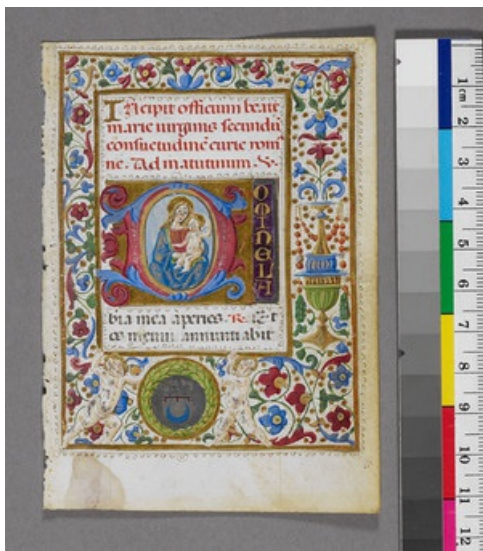 INcipit officium beate
marie uirginis secundũ
consuetudinẽ curie rom
ne. Ad matutinum. 
DOMINE LA
bia mea aperies. R. Et
os meum annuntiabit
1 cm 2 3 4 5 6 7 8 9 10 11 12